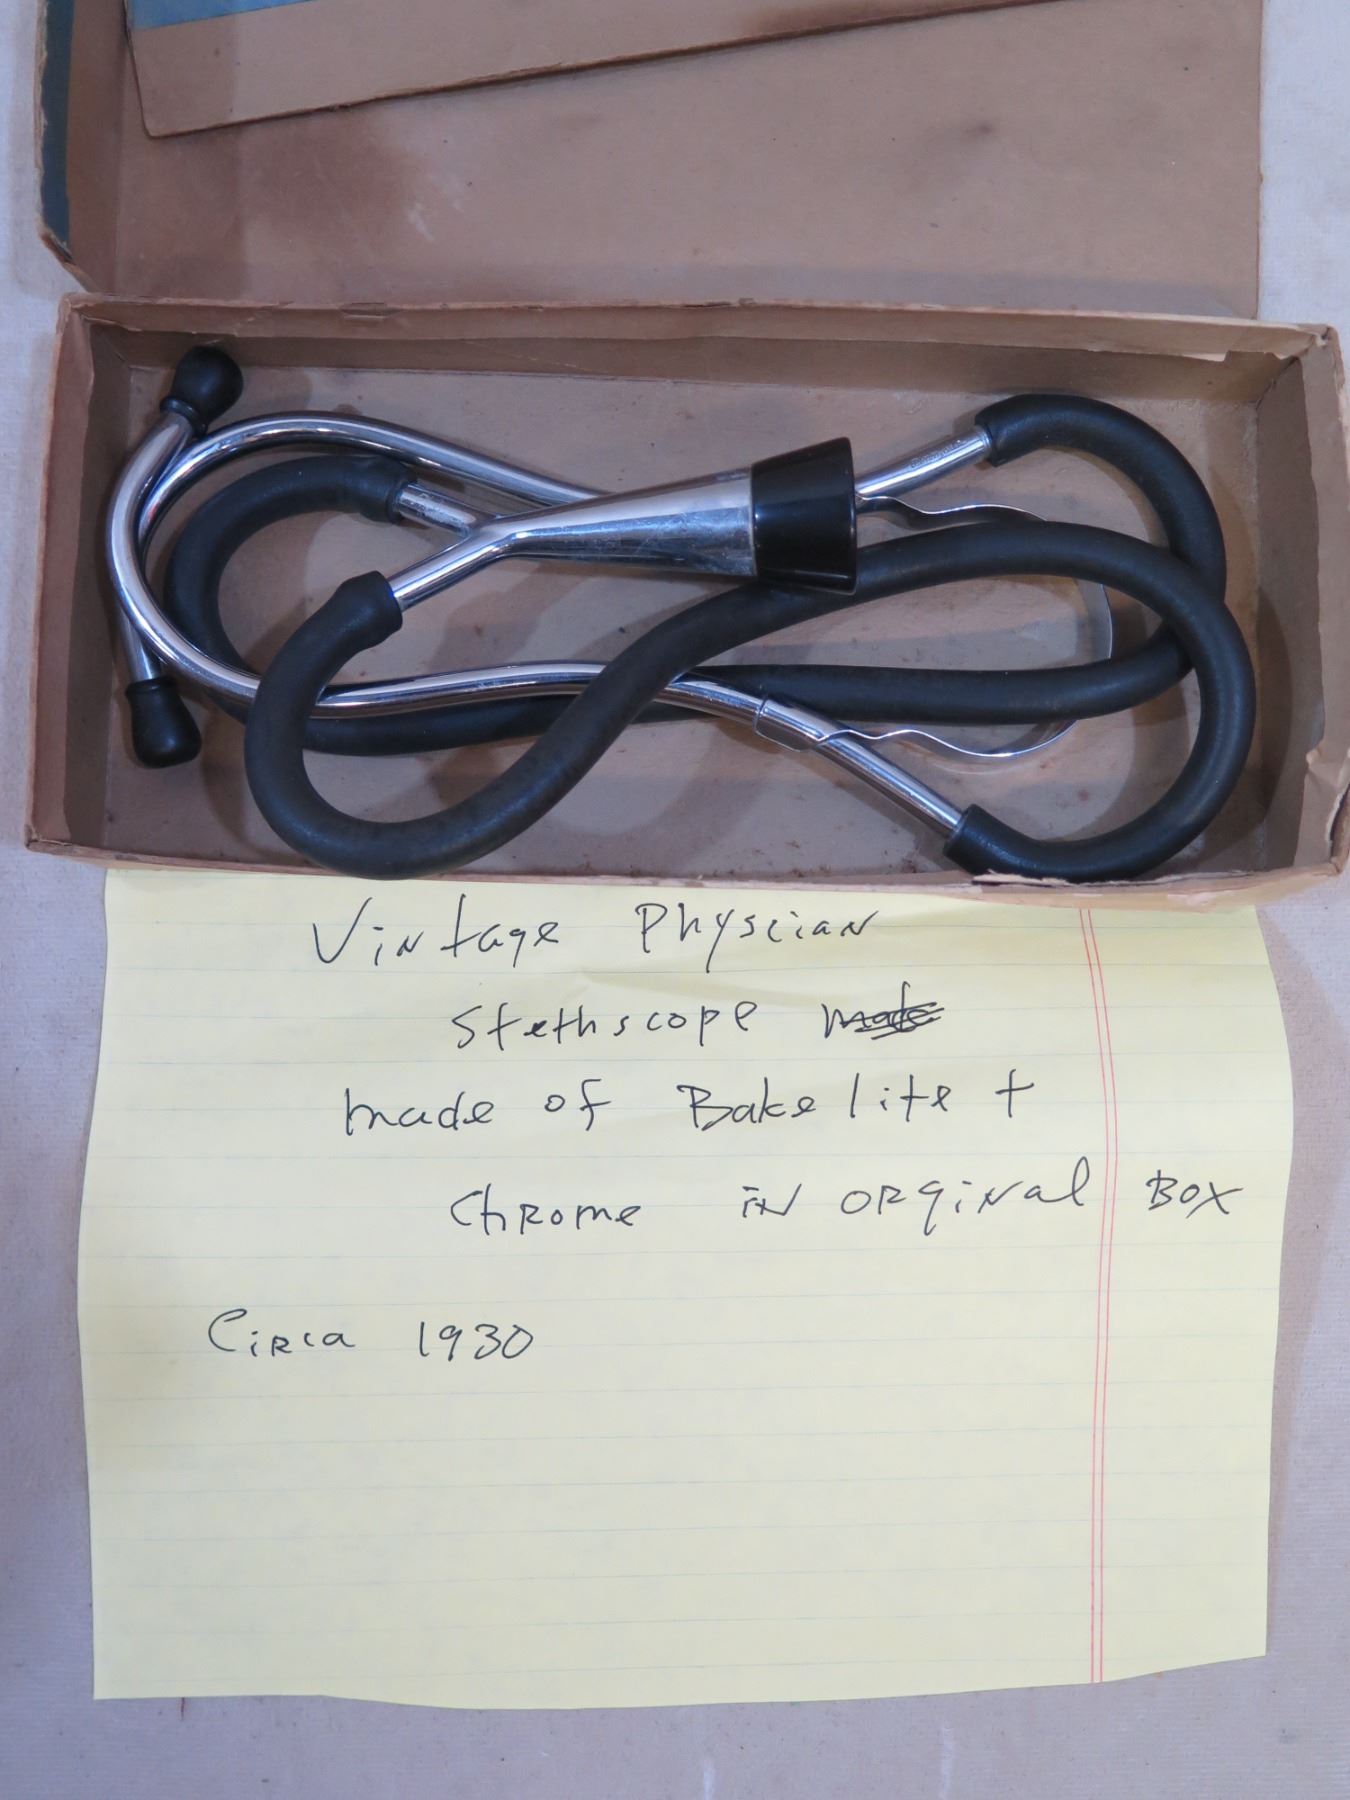 Vintage Physcian
Stethscope made
made of Bakelite +
Chrome in orginal Box
Circa 1930